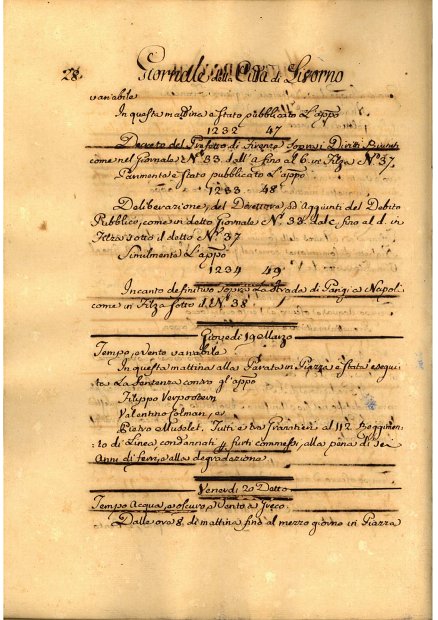 28. Giornale della Città di Livorno
variabile
In questa mattina è stato pubblicato L'appo
1232 47
Decreto del Prefetto di Firenze sopra i Diritti Riuniti
come nel Giornale N.º 33. dell'a fino al 6. in Filza N.º 37.
Parimente è stato pubblicato L'appo
1233 48
Deliberazione, del Direttore, ed Aggiunti del Debito
Pubblico, come in detto Giornale N.º 33. dal c. fino al d. in
Filza sotto il detto N.º 37
Similmente L'appo
1234 49
Incanto definitivo sopra La Strada di Parigi a Napoli
come in Filza sotto d. N.º 38
Giovedi 19 Marzo
Tempo, e Vento variabile
In questa mattina alla Parata in Piazza è stata esegui-
ta La Sentenza contro gl'appo
Filippo
Valentino Colman, e
Pietro Mudelet, Tutti e tre Granatieri al 112. Reggimen-
to di Linea condannati p furti commessi, alla pena di sei
Anni di ferri, e alla degradazione
Venerdi 20 Detto
Tempo Acqua, e oscuro, e Vento a Greco.
Dalle ore 8. di mattina fino al mezzo giorno in Piazza